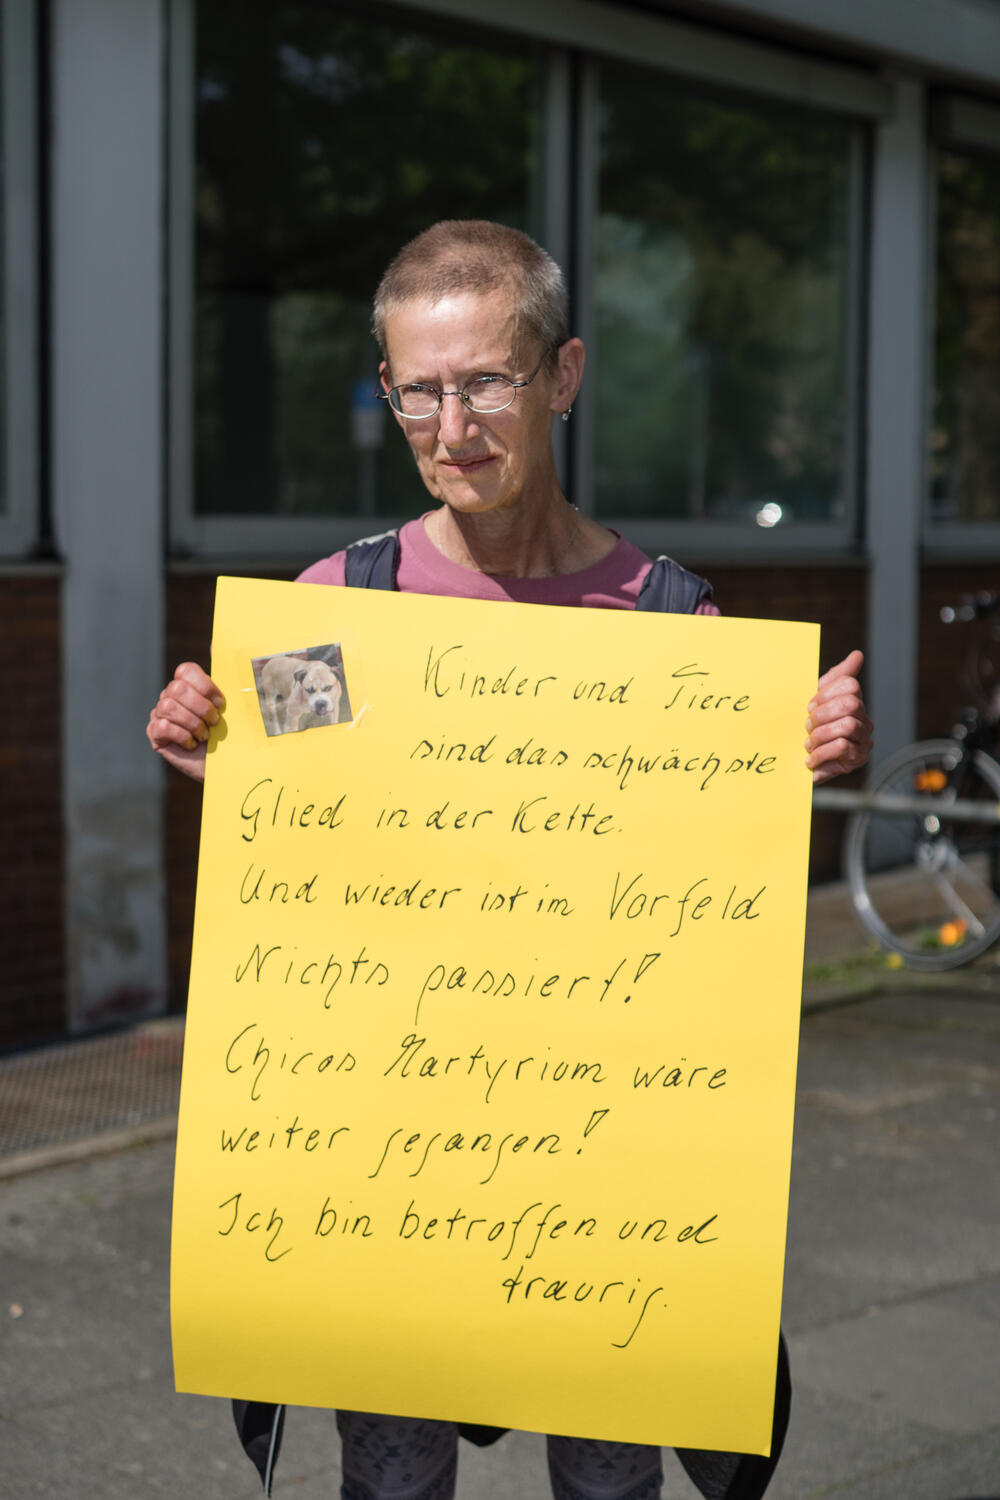 Kinder und Tiere
sind das schwächste
Glied in der Kette.
Und wieder ist im Vorfeld
Nichts passiert!
Chicos Martyrium wäre
weiter gegangen!
Ich bin betroffen und
traurig.